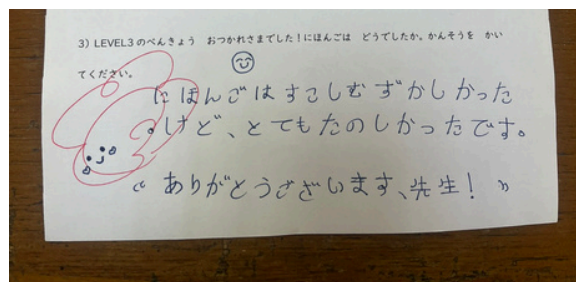 3）LEVEL3のべんきょう　おつかれさまでした！にほんごは　どうでしたか。かんそうを　かい
てください。
にほんごはすこしむずかしかった
けど、とてもたのしかったです。
“ありがとうございます、先生！”